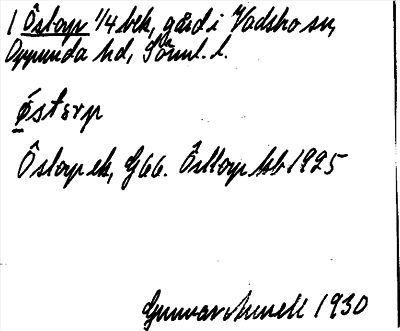 1 Östorp 1/4 bek, gård i Vadsbro sn,
Oppunda hd, Söml. l.
östórp
Östorp ek, G66. Östtorp kb 1925
Gunvar Aurell 1930